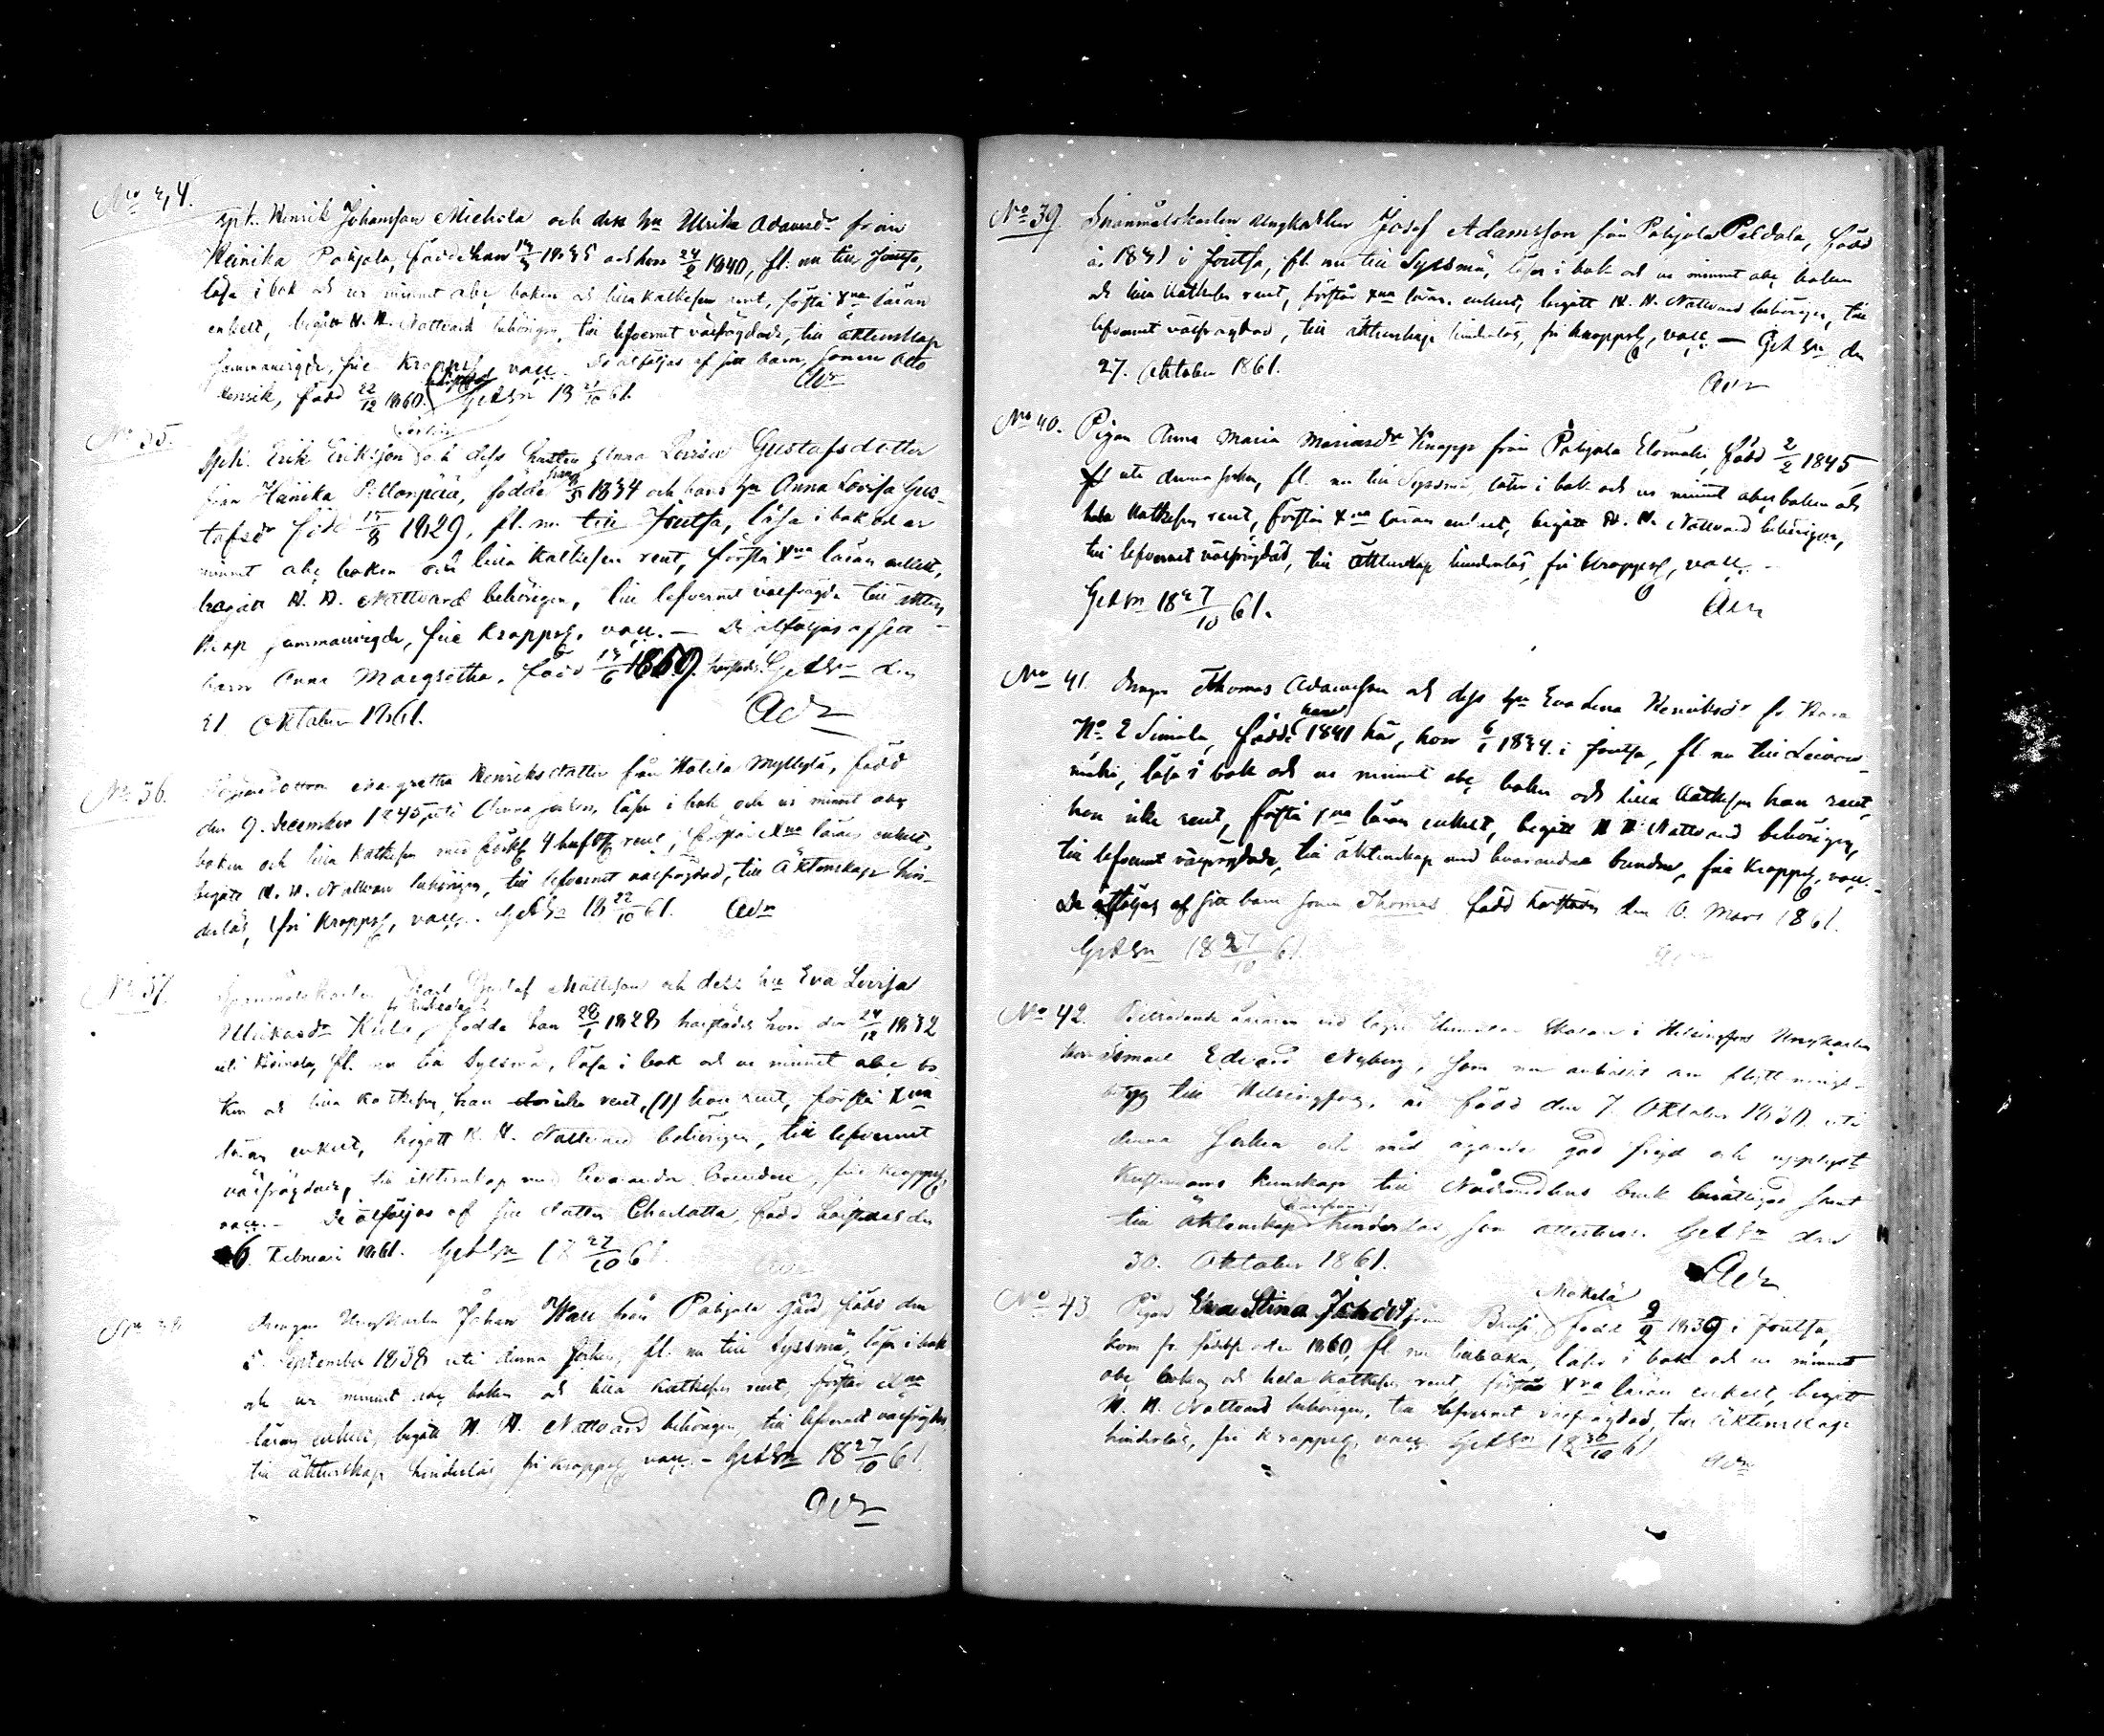 No 34.
spt. Henrik Johansson Mickola och dess hu Ulrika Adamsdr från
Heinika Pohjola, födde han 1835 och hon 24/9 1840, fl. nu till Joutsa,
läsa i bok och ur minnet abc boken och lilla kathesen rent, förstå Xna läran
enkelt, begått H. H. Nattvard behörigen, till lefvernet välfrägdade, till äktenskap
sammanvigde, frie kroppsf, vacc. De åtföljas af sitt barn, sonen
Henrik, född 22/12 1860. GetSn 18 21/10 61.
Adn
No 35.
Spt. Erik Eriksson och dess hustru Anna Lovisa Gustafsdotter
från Heinika född han 1834 och hans hu Anna Lovisa Gus-
tafsdr född 15/8 1829, fl. nu till Joutsa, läsa i bok och ur
minnet abc boken och lilla kathesen rent, förstå Xna läran enkelt,
begått H. H. Nattvard behörigen, till lefvernet välfrägde till äkten-
skap sammanvigde, frie kroppsf. vacc. — De åtföljas af sitt
barn Anna Margretha, född 1859. härstädes. GetSn den
21 Oktober 1861.
Adn
No 36.
Margretha Henriksdotter från Myllylä, född
den 9. December 1845, uti denna socken, läser i bok och ur minnet abc
boken och lilla kathesen med rent, förstår Xna läran enkelt,
begått H. H. Nattvard behörigen, till lefvernet välfrägdad, till äktenskap hin-
derlös, fri kroppsf, vacc. GetSn 18 22/10 61. Adn
No 37.
Gustaf Mattsson och dess hu Eva Lovisa
Ulrikasdr födda han 28/1 1828 härstädes hon den 24/12 1832
uti fl. nu till Sysmä, läsa i bok och ur minnet abc bo-
ken och lilla kathesen, han icke rent, (1) hon rent, förstå Xna
läran enkelt, begått H. H. Nattvard behörigen, till lefvernet
välfrägdade, till äktenskap med hvarandra bundne, frie kroppsf,
vacc. — De åtföljas af sin dotter Charlotta, född härstädes den
6. Februari 1861. GetSn 18 27/10 61.
Adn
No 38.
Drengen Ungkarlen Johan Wall från Pohjola gård född den
5. September 1838 uti denna socken, fl. nu till Sysmä, läser i bok
och ur minnet abc boken och lilla kathesen rent, förstår Xna
läran enkelt, begått H. H. Nattvard behörigen, till lefvernet välfrägdad,
till äktenskap hinderlös fri kroppsf vacc. — GetSn 18 27/10 61.
Adn
No 39.
Inanmålskarlen Ungkarlen Josef Adamsson från Pohjola Peldola, född
år 1831 i Joutsa, fl. nu till Sysmä, läser i bok och ur minnet abc boken
och lilla kathesen rent, förstår Xna läran enkelt, begått H. H. Nattvard behörigen, till
lefvernet välfrägdad, till äktenskap hinderlös, fri kroppsf, vacc. — GetSn den
27. Oktober 1861.
Adn
No 40.
Pigan Anna Maria Mariasdr Knapp från Pohjola Elomäki, född 2/2 1845
uti denna socken, fl. nu till Sysmä, läser i bok och ur minnet abc boken och
hela kathesen rent, förstår Xna läran enkelt, begått H. H. Nattvard behörigen,
till lefvernet välfrägdad, till äktenskap hinderlös, fri kroppsf, vacc. —
GetSn 18 27/10 61.
Adn
No 41.
Drengen Thomas Adamsson och dess hu Eva Lena Henriksdr fr
No 2 Simola, födde han 1841 här, hon 6/1 1834 i Joutsa, fl. nu till Leivon-
mäki, läsa i bok och ur minnet abc boken och lilla kathesen han rent,
hon icke rent, förstå Xna läran enkelt, begått H. H. Nattvard behörigen,
till lefvernet välfrägdade, till äktenskap med hvarandra bundne, frie kroppsf, vacc. —
De åtföljas af sitt barn sonen Thomas född härstädes den 6. Mars 1861.
GetSn 18 27/10 61
Adn
No 42.
Biträdande Läraren vid lägre Elementar Skolan i Helsingfors Ungkarlen
Ismael Edvard Nyberg, som nu anhållit om flyttnings-
betyg till Helsingfors, är född den 7. Oktober 1830 uti
denna socken och med ägande god frejd och upplyst
kristendoms kunskap till Nådemedlens bruk berättigad samt
till äktenskap härifrån hinderlös, som attesteras. GetSn den
30. Oktober 1861.
Adn
No 43
Pigan Eva Stina Johdr från Mäkelä född 9/2 1839 i Joutsa,
kom fr. födelseorten 1860, fl. nu tillbaka, läser i bok och ur minnet
abc boken och hela kathesen rent, förstår Xna läran enkelt, begått
H. H. Nattvard behörigen, till lefvernet välfrägdad, till äktenskap
hinderlös, fri kroppsf, vacc. GetSn 18 30/10 61
Adn